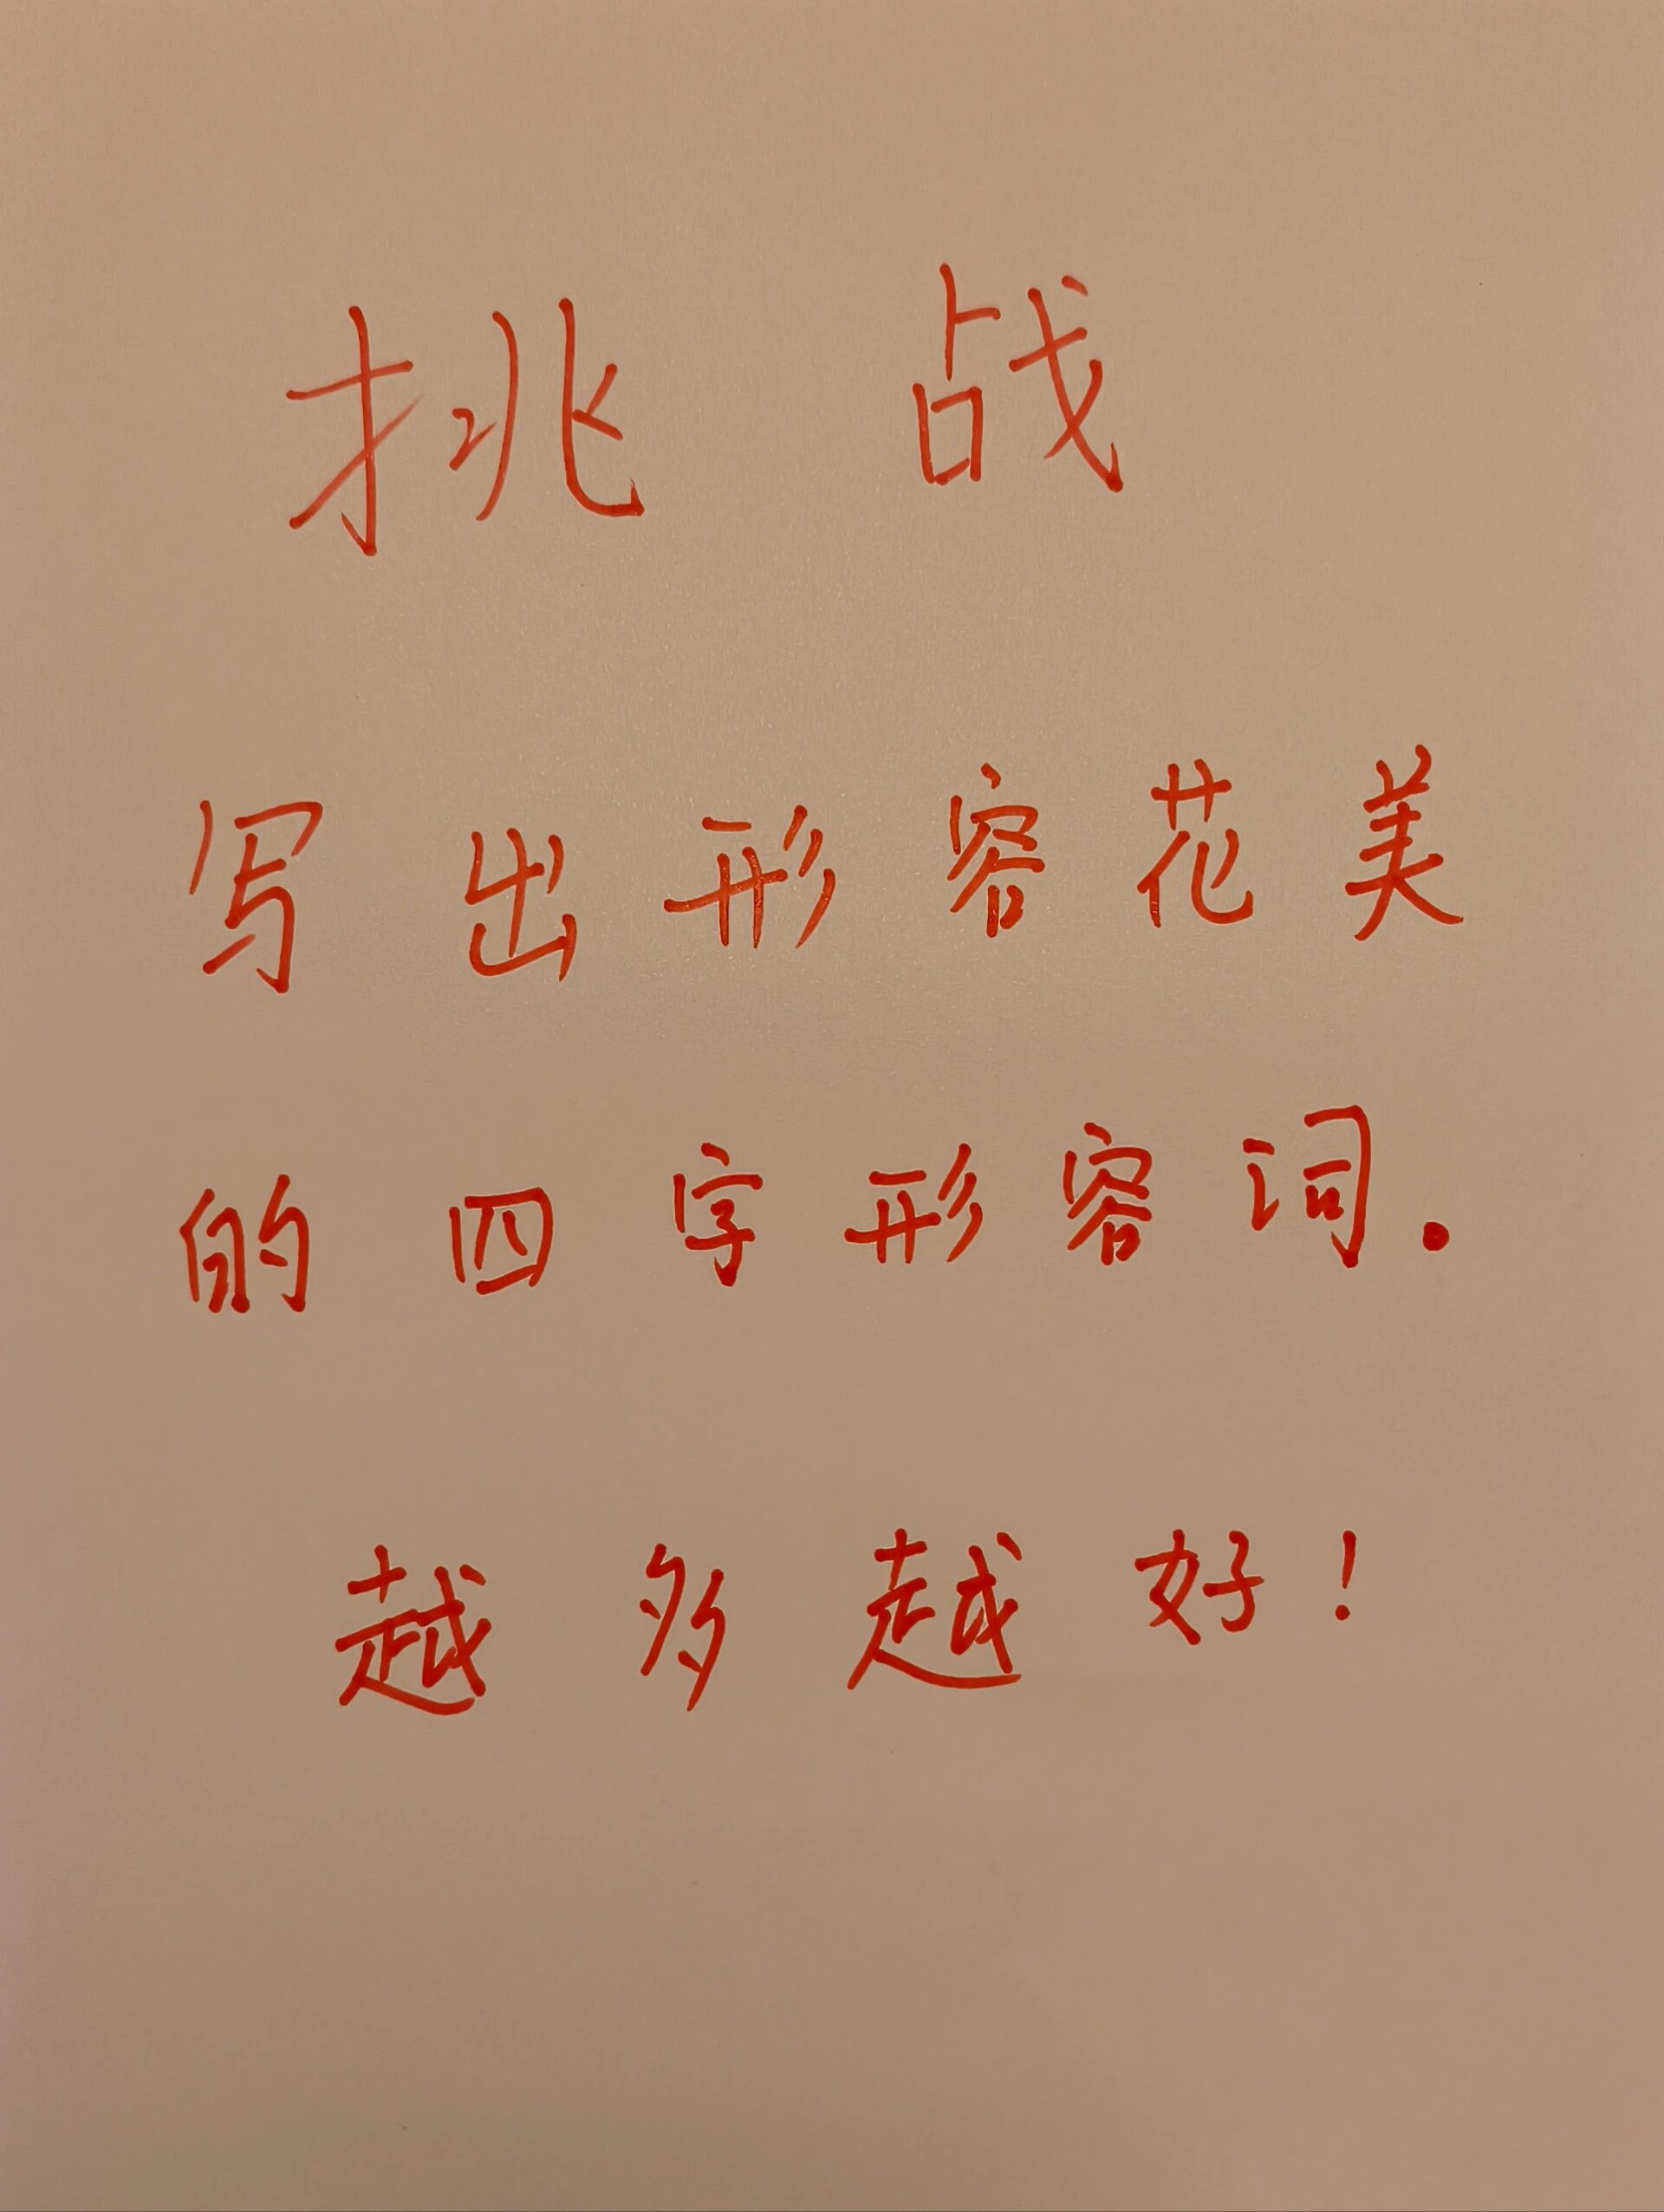 挑战
写出形容花美
的四字形容词.
越多越好!